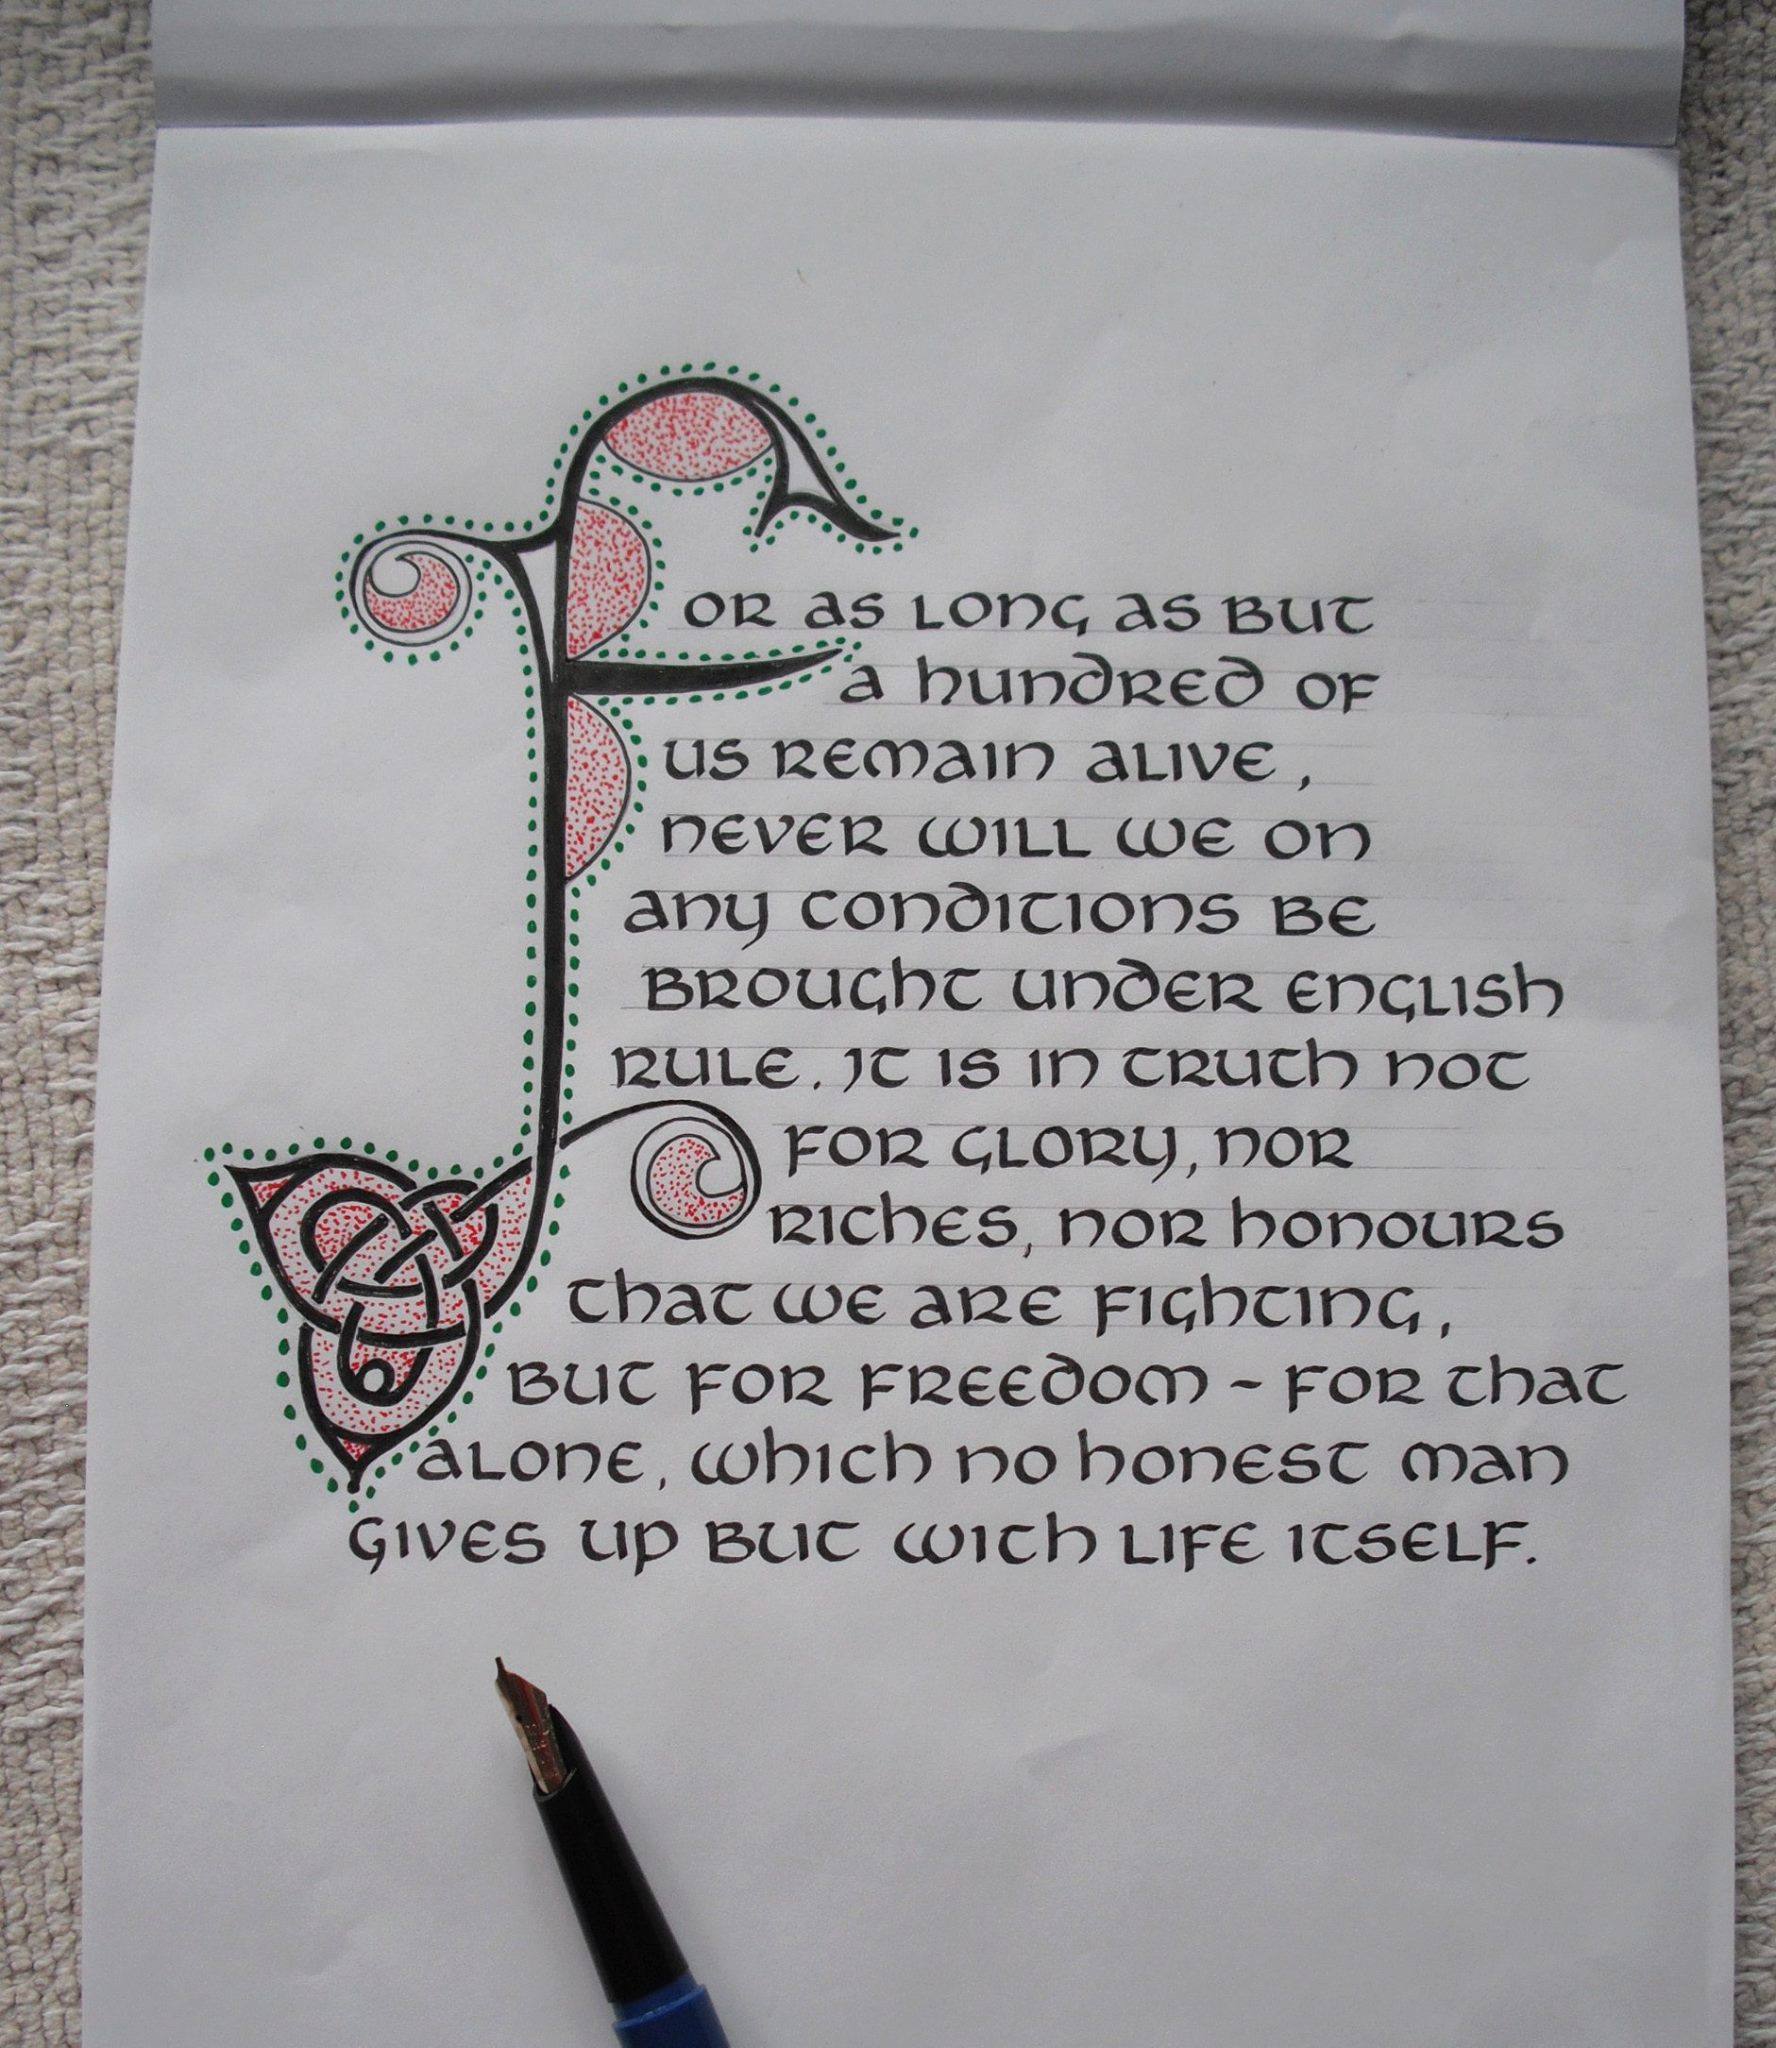 For as long as but
a hundred of
us remain alive,
never will we on
any conditions be
brought under English
rule. It is in truth not
for glory, nor
riches, nor honours
that we are fighting,
but for freedom - for that
alone, which no honest man
gives up but with life itself.